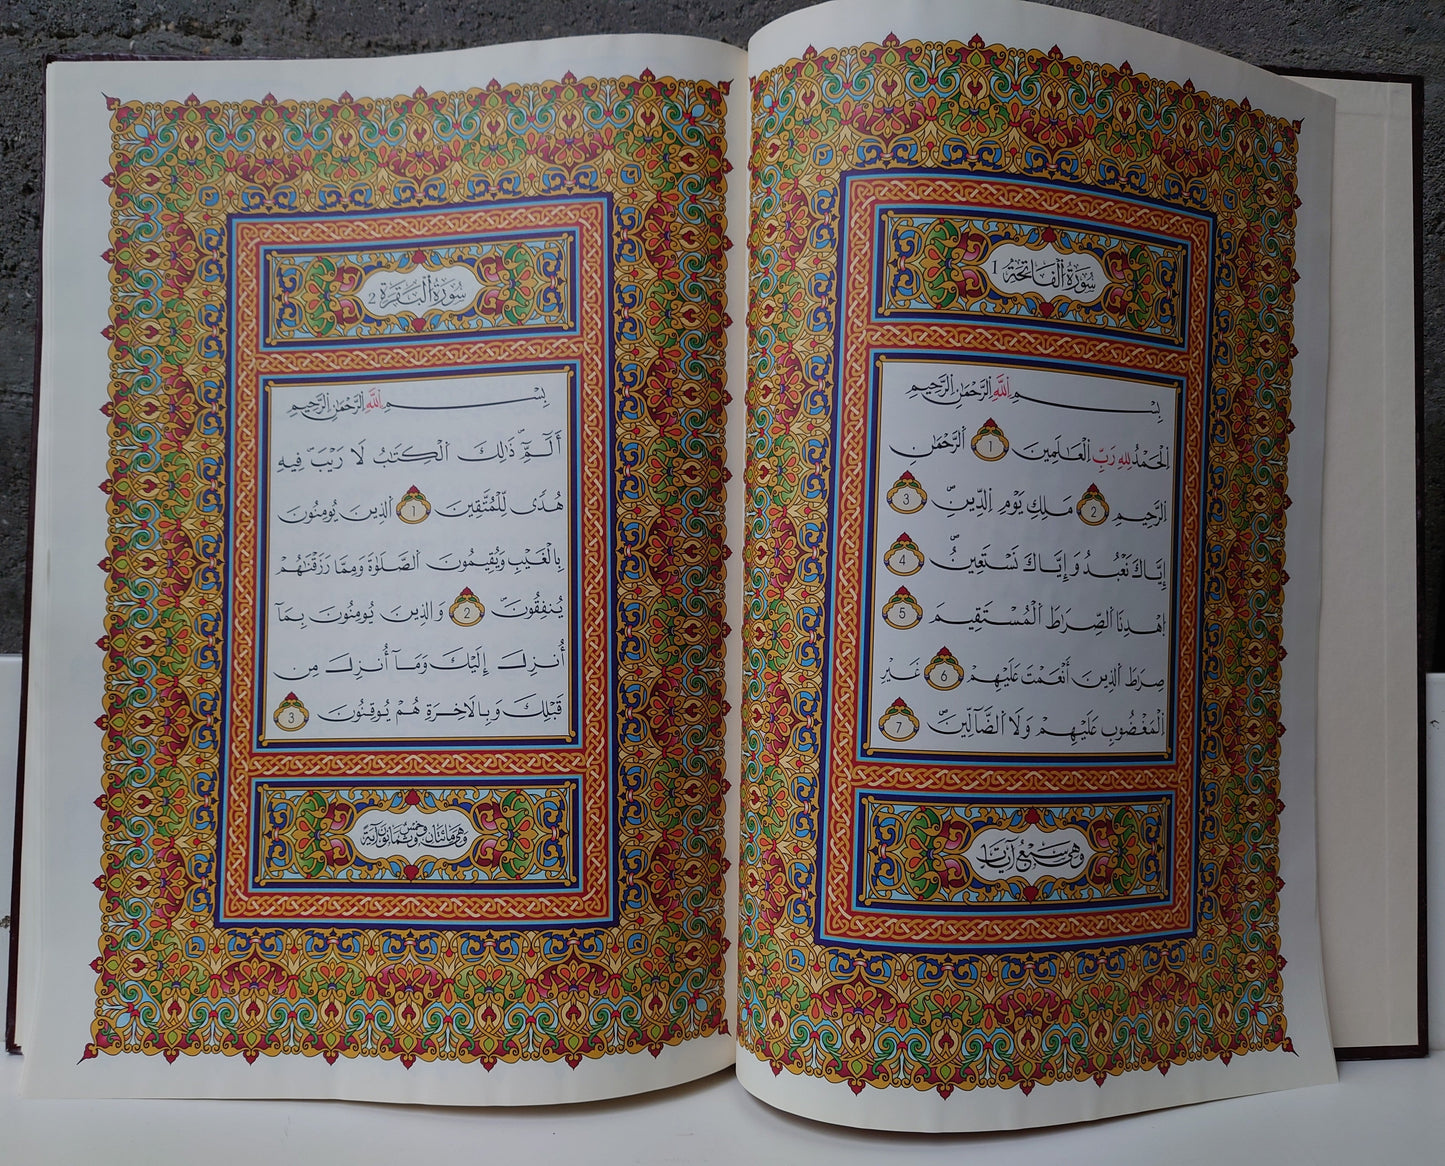 سُورَةُ الْفَاتِحَةِ 1
بِسْمِ اِللَّهِ اِلرَّحْمَٰنِ اِلرَّحِيمِ
اِلْحَمْدُ لِلهِ رَبِّ اِلْعَٰلَمِينَ 1 اَلرَّحْمَٰنِ
اِلرَّحِيمِ 2 مَلِكِ يَوْمِ اِلدِّينِ 3
إِيَّاكَ نَعْبُدُ وَإِيَّاكَ نَسْتَعِينُ 4
اِهْدِنَا اَلصِّرَٰطَ اَلْمُسْتَقِيمَ 5
صِرَٰطَ اَلذِينَ أَنْعَمْتَ عَلَيْهِمْ 6 غَيْرِ
اِلْمَغْضُوبِ عَلَيْهِمْ وَلَا اَلضَّآلِّينَ 7
وَهْيَ سَبْعُ ءَايَاتٍ
سُورَةُ الْبَقَرَةِ 2
بِسْمِ اِللَّهِ اِلرَّحْمَٰنِ اِلرَّحِيمِ
أَلَٓمِّٓ ذَٰلِكَ اَلْكِتَٰبُ لَا رَيْبَ فِيهِ
هُدًى لِّلْمُتَّقِينَ 1 اَلذِينَ يُومِنُونَ
بِالْغَيْبِ وَيُقِيمُونَ اَلصَّلَوٰةَ وَمِمَّا رَزَقْنَٰهُمْ
يُنفِقُونَ 2 وَالذِينَ يُومِنُونَ بِمَآ
أُنزِلَ إِلَيْكَ وَمَآ أُنزِلَ مِن
قَبْلِكَ وَبِالَاخِرَةِ هُمْ يُوقِنُونَ 3
وَهْيَ مِائَتَانِ وَخَمْسٌ وَثَمَانُونَ آيَةً